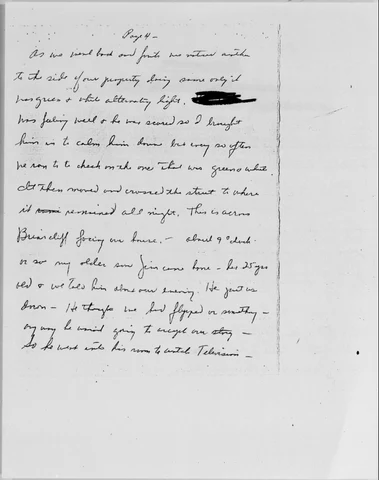 Page 4 -
As we went back and forth we notice another
to the side of our property doing same only it
was green & white alternating light.
was feeling well & he was scared so I brought
him in to calm him down but every so often
we ran to to check on the one that was green & white.
It then moved and crossed the street to where
it remained all night. This is across
Briarcliff facing our house. - about 9 o'clock
or so my older son Jim came home - he's 25 yrs
old & we told him about our evening. He put us
down - He thought we had flipped or something -
any way he wasn't going to accept our story -
So he went into his room to watch Television -